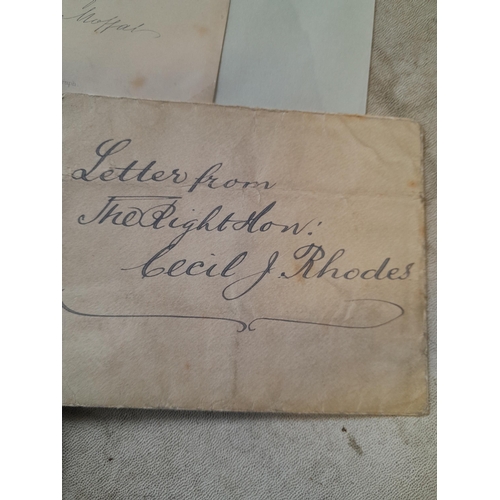 Moffat
Letter from
The Right Hon:
Cecil J. Rhodes